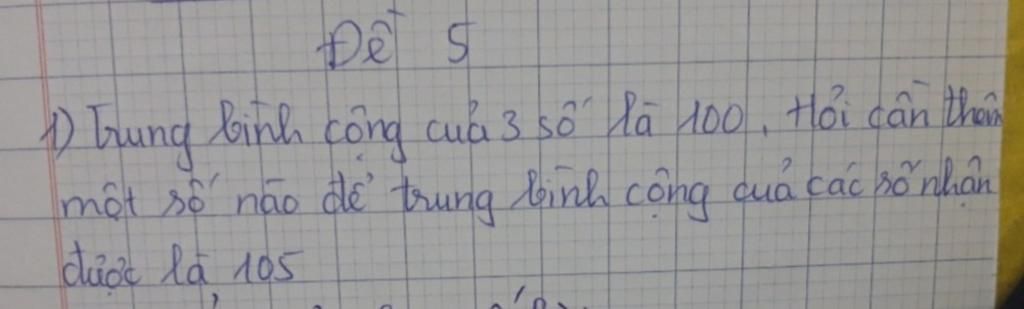 Đề 5
1) Trung bình cộng của 3 số là 100. Hỏi cần thêm
một số nào để trung bình cộng của các số nhận
được là 105